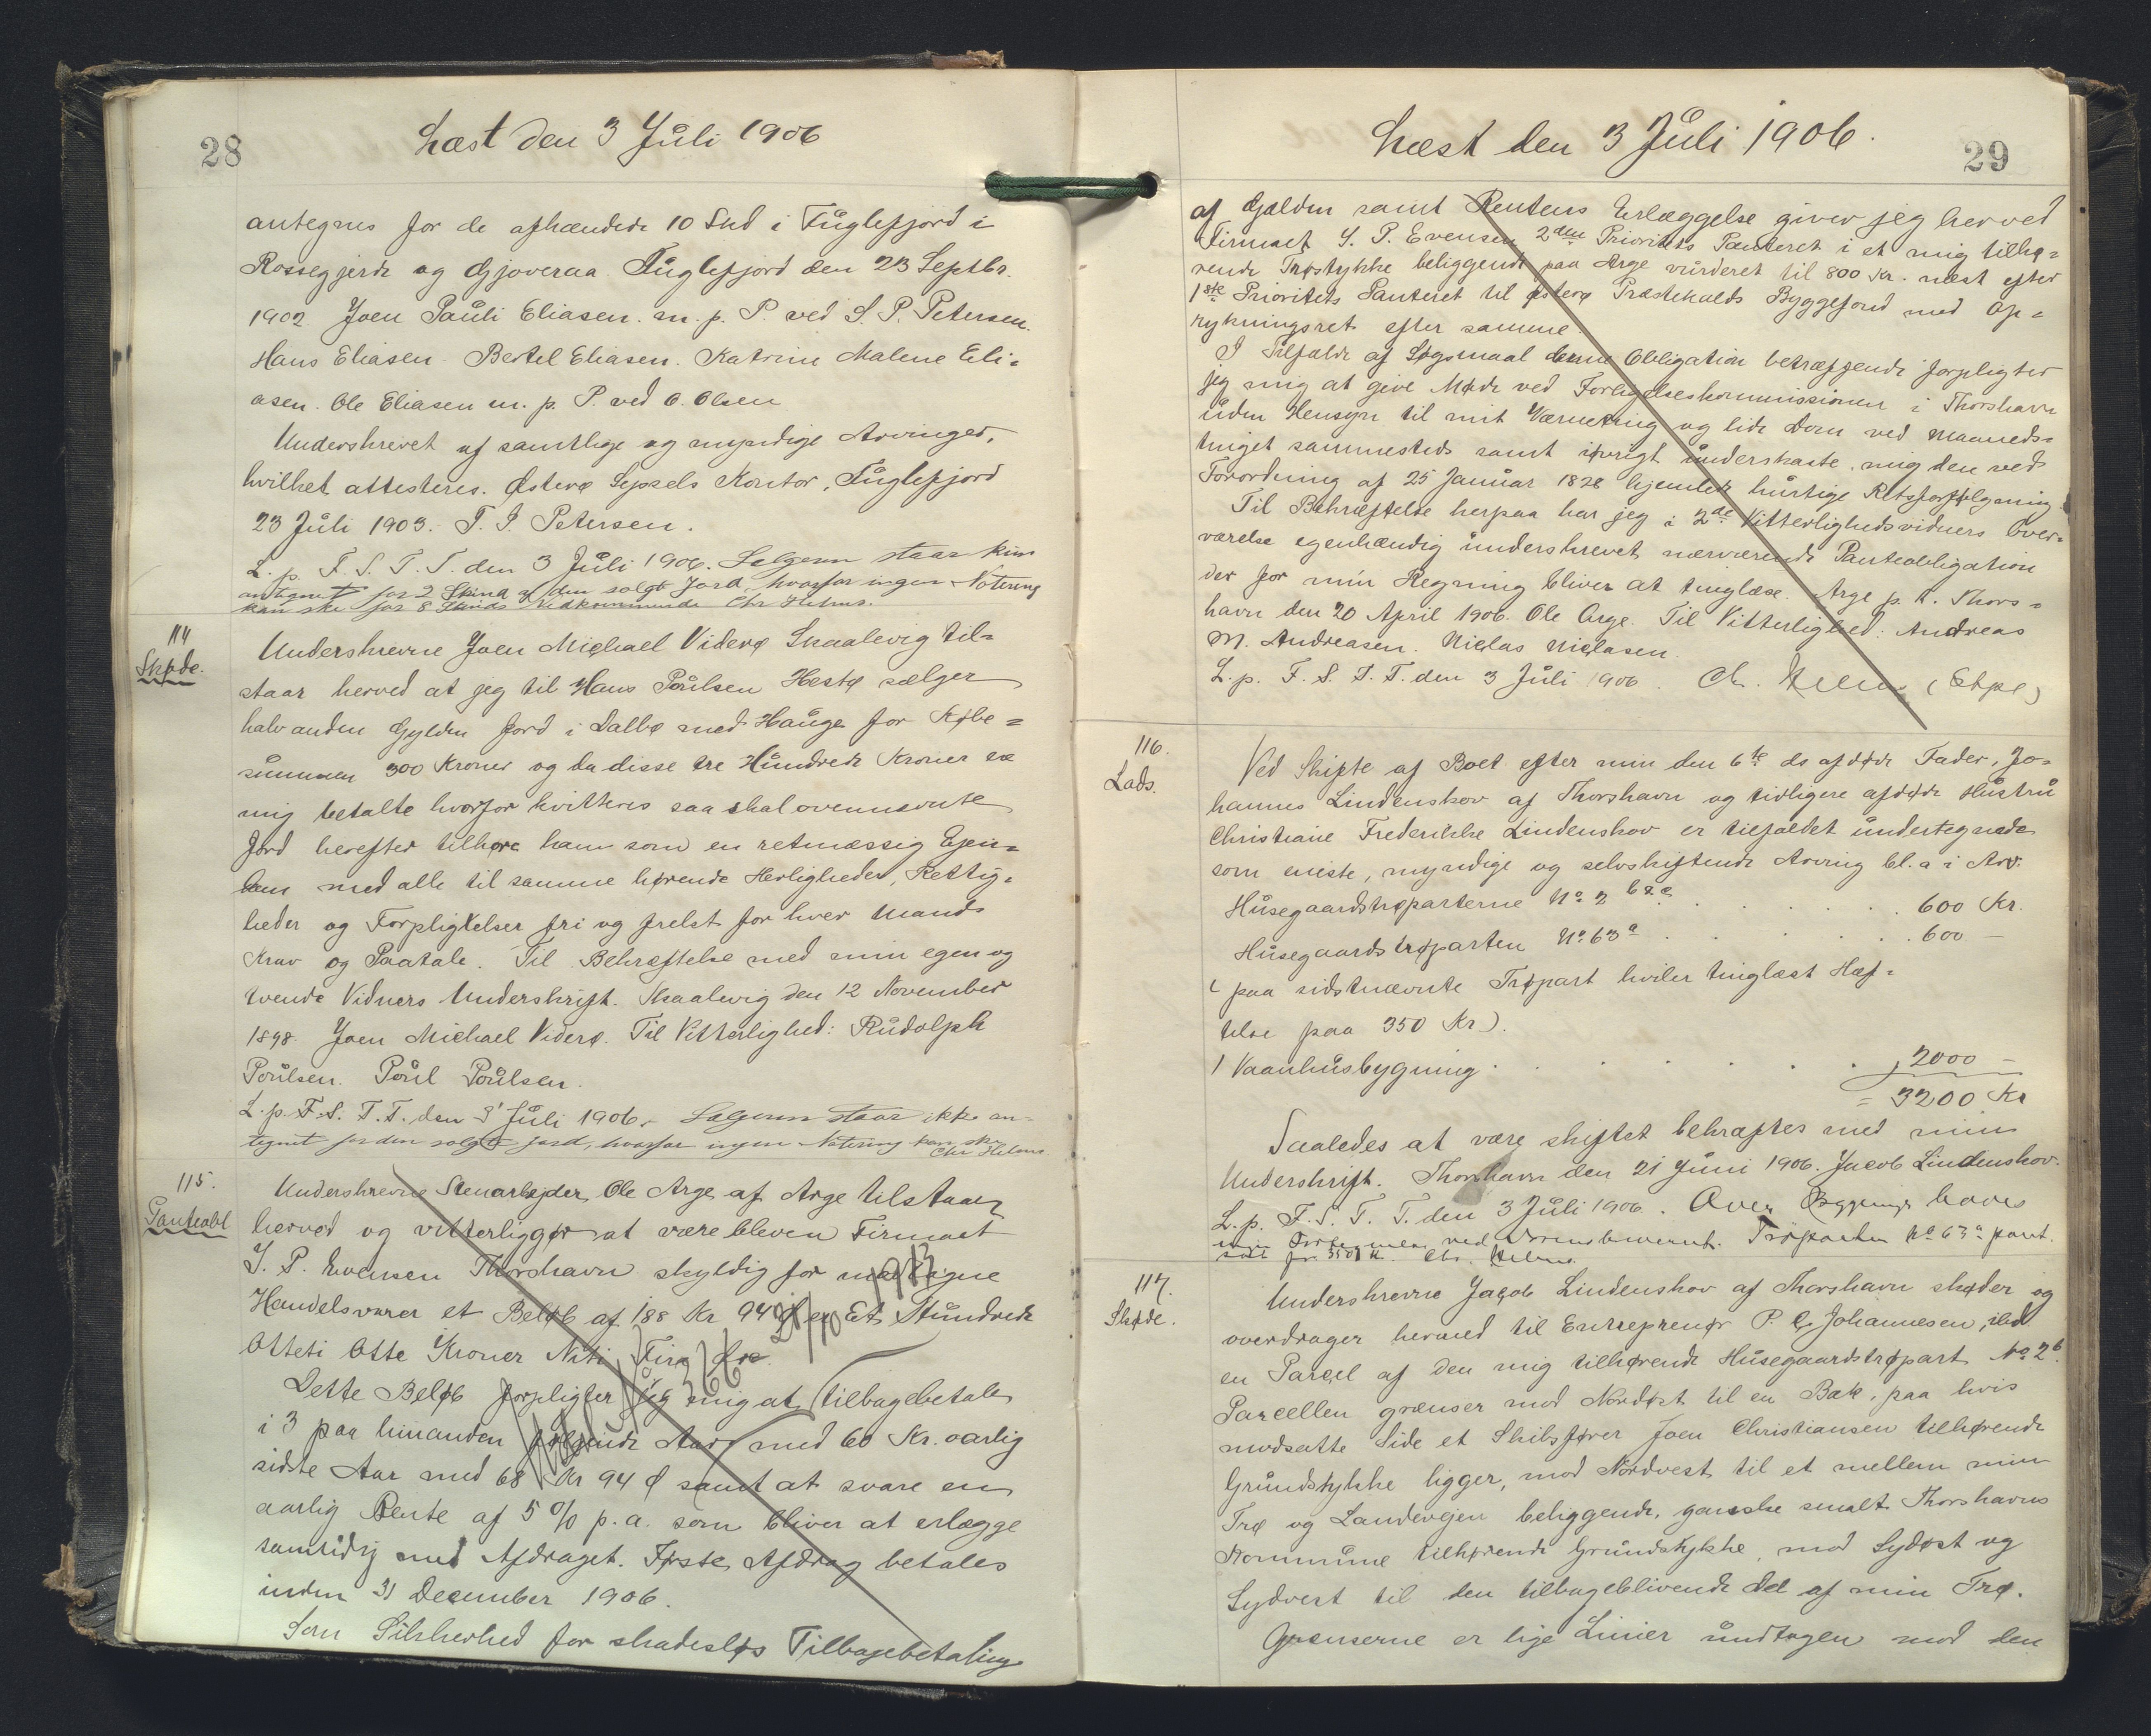 28
Læst den 3 Juli 1906
antegnes for de afhændede 10 Skd i Fuglefjord i
Rossegjerde og Gjoveraa Fuglefjord den 23 Septbr.
1902. Joen Pauli Eliasen. m. p. P. ved S. P. Petersen.
Hans Eliasen. Bertel Eliasen. Katrine Malene Eli=
asen. Ole Eliasen m. p. P. ved O. Olsen
Underskrevet af samtlige og myndige Arvinger,
hvilket attesteres. Østerø Syssels Kontor, Fuglefjord
23 Juli 1903. T. I. Petersen.
L. p. F. S. T. T. den 3 Juli 1906. Sælgeren staar kun
antegnet for 2 Skind af den solgte Jord hvorfor ingen Notering
kan ske for 8 Skinds Vedkommende Chr Helms.
114
Skøde.
Underskrevne Joen Michael Viderø Skaalevig til=
staar herved at jeg til Hans Poulsen Hestø sælger
halvanden Gylden Jord i Dalbø med Hauge for Købe=
summen 300 Kroner og da disse tre Hundrede Kroner er
mig betalte hvorfor kvitteres saa skal ovennævnte
Jord herefter tilhøre ham som en retmæssig Ejen=
dom med alle til samme hørende Herligheder, Rettig=
heder og Forpligtelser fri og frelst for hver Mands
Krav og Paatale. Til Bekræftelse med min egen og
tvende Vidners Underskrift. Skaalevig den 12 November
1898. Joen Michael Viderø. Til Vitterlighed: Rudolph
Poulsen. Poul Poulsen.
L. p. F. S. T. T. den 3 Juli 1906. Sælgeren staar ikke an-
tegnet for den solgte Jord, hvorfor ingen Notering kan ske
Chr Helms.
115.
Panteobl
Underskrevne Stenarbejder Ole Arge af Arge tilstaar
herved og vitterliggør at være bleven Firmaet
S. P. Evensen Thorshavn skyldig for modtagne
Handelsvarer et Beløb af 188 Kr 94 Ø er Et Hundrede
Otteti Otte Kroner Niti Fire Øre.
Dette Beløb forpligter jeg mig at tilbagebetale
i 3 paa hinanden følgende Aar med 60 Kr. aarlig
sidste Aar med 68 Kr 94 Ø samt at svare en
aarlig Rente af 5 % p. a. som bliver at erlægge
samtidig med Afdraget. Første Afdrag betales
inden 31 December 1906.
Som Sikkerhed for skadesløs Tilbagebetaling
29
Læst den 3 Juli 1906.
af Gjælden samt Rentens Erlæggelse giver jeg herved
Firmaet S. P. Evensen 2den Prioritets Panteret i et mig tilhø=
rende Trøstykke beliggende paa Arge vurderet til 800 Kr. næst efter
1ste Prioritets Panteret til Østerø Præstekalds Byggefond med Op=
rykningsret efter samme.
I Tilfælde af Søgsmaal denne Obligation betræffende forpligter
jeg mig at give Møde ved Forligelseskommissionen i Thorshavn
uden Hensyn til mit Værneting og lide Dom ved Maaneds=
tinget sammesteds samt iøvrigt underkaste mig den ved
Forordning af 25 Januar 1828 hjemlede hurtige Retsforfølgning.
Til Bekræftelse herpaa har jeg i 2de Vitterlighedsvidners Over=
værelse egenhændig underskrevet nærværende Panteobligation
der for min Regning bliver at tinglæse. Arge p. t. Thors=
havn den 20 April 1906. Ole Arge. Til Vitterlighed: Andreas
M. Andreasen. Niclas Niclasen.
L. p. F. S. T. T. den 3 Juli 1906. Ch. Helms (Stpl)
116.
Lods.
Ved Skifte af Boet efter min den 6te ds afdøde Fader, Jo=
hannes Lindenskov af Thorshavn og tidligere afdøde Hustru
Christiane Frederikke Lindenskov er tilfaldet undertegnede
som eneste, myndige og selvskiftende Arving bl. a i Arv:
Husegaardstrøparterne No 2 b & c . . . . . 600 Kr.
Husegaardstrøparten No 63 a . . . . . 600 —
( paa sidstnævnte Trøpart hviler tinglæst Hæf=
telse paa 350 Kr).
1 Vaanhusbygning . . . . . 2000 —
= 3200 Kr
Saaledes at være skiftet bekræftes med min
Underskrift. Thorshavn den 21 Juni 1906. Jacob Lindenskov.
L. p. F. S. T. T. den 3 Juli 1906. Over Bygninger haves
ved Trøparten No 63 a pant.
sat for 350 Kr. Chr. Helms
117.
Skøde.
Underskrevne Jacob Lindenskov af Thorshavn skøder og
overdrager hermed til Entreprenør P. C. Johannesen, ibd
en Parcel af den mig tilhørende Husegaardstrøpart No 2 b.
Parcellen grænser mod Nordøst til en Bæk, paa hvis
modsatte Side et Skibsfører Joen Christiansen tilhørende
Grundstykke ligger, mod Nordvest til et mellem min
Trø og Landevejen beliggende, ganske smalt Thorshavns
Kommune tilhørende Grundstykke, mod Sydøst og
Sydvest til den tilbageblivende Del af min Trø.
Grænserne er lige Linier undtagen mod den